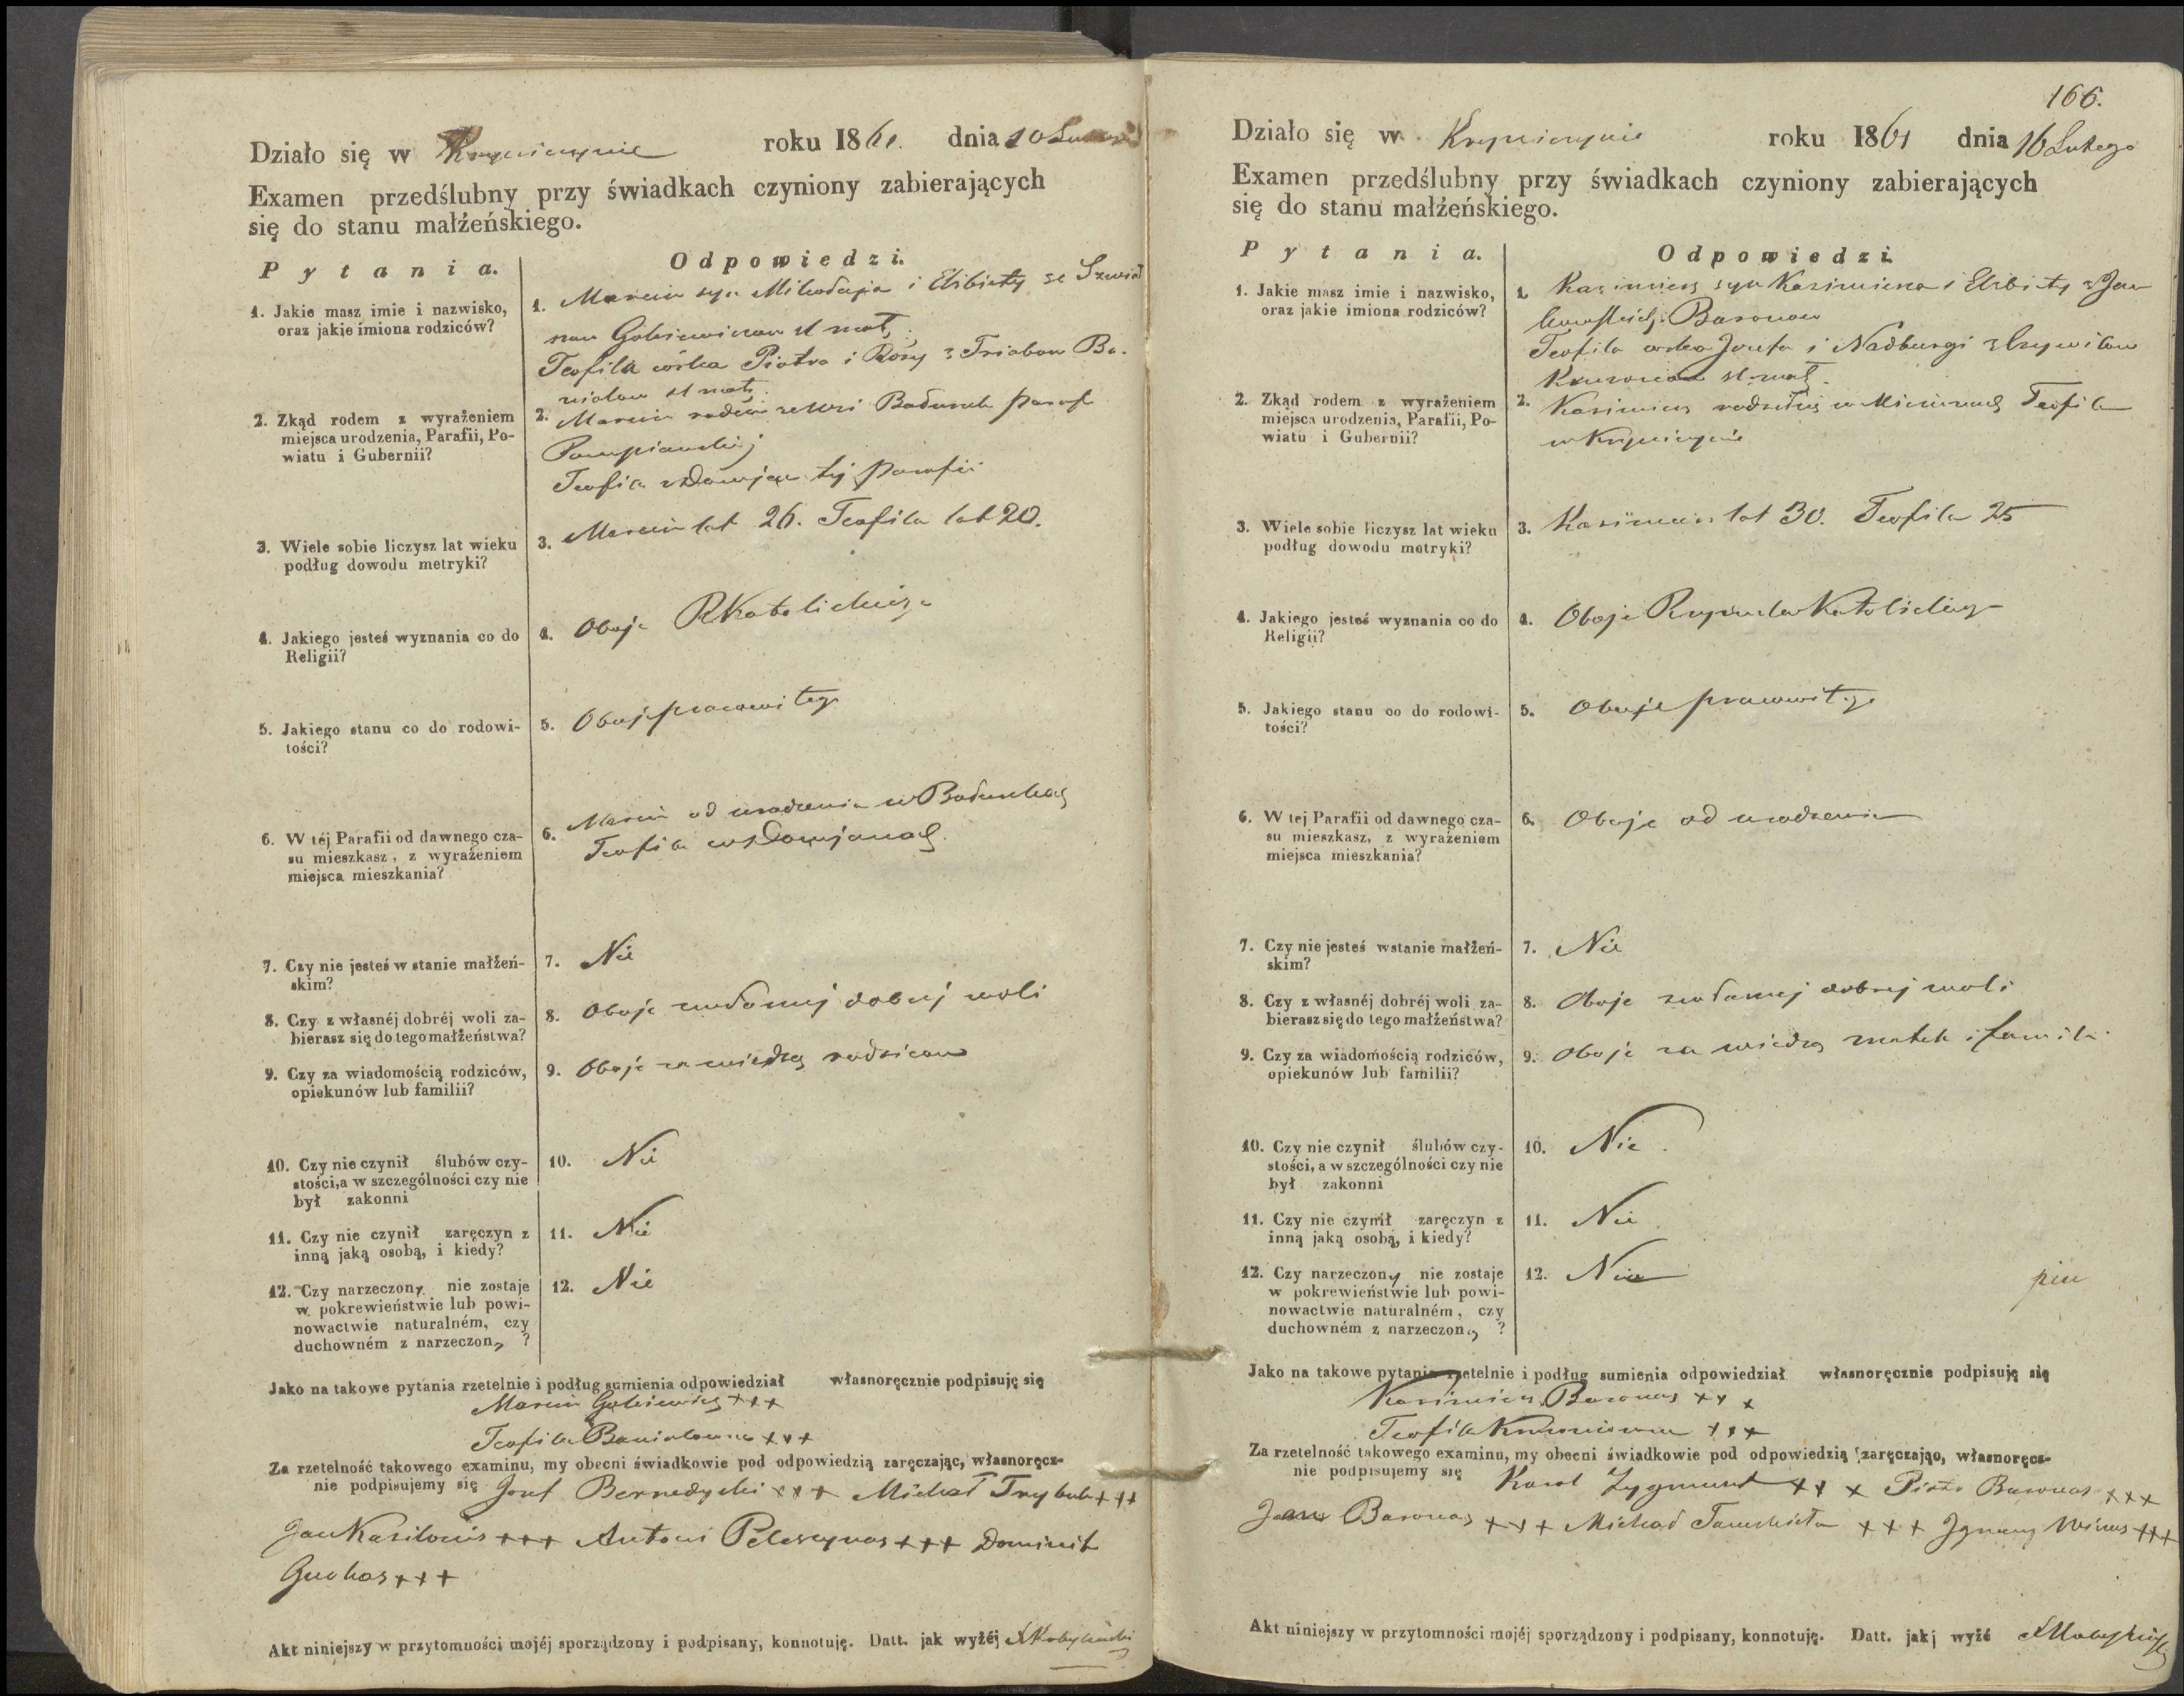 Działo się w Krypniczynie roku 1861. dnia 10
Examen przedślubny przy świadkach czyniony zabierających
się do stanu małżeńskiego.
Pytania.
Odpowiedzi.
1. Jakie masz imie i nazwisko,
oraz jakie imiona rodziców?
1. Marcin syn Mikołaja i Elżbiety ze
st. mał.
Teofila córka Piotra i Róży z
st. mał.
2. Zkąd rodem z wyrażeniem
miejsca urodzenia, Parafii, Po-
wiatu i Gubernii?
2. Marcin rodem ze wsi paraf
Teofila tej parafii
3. Wiele sobie liczysz lat wieku
podług dowodu metryki?
3. Marcin lat 26. Teofila lat 20.
4. Jakiego jesteś wyznania co do
Religii?
4. Oboje RKatolickiego
5. Jakiego stanu co do rodowi-
tości?
5. Oboje pracowitego
6. W téj Parafii od dawnego cza-
su mieszkasz, z wyrażeniem
miejsca mieszkania?
6. Marcin od urodzenia w
Teofila w
7. Czy nie jesteś w stanie małżeń-
skim?
7. Nie
8. Czy z własnéj dobréj woli za-
bierasz się do tego małżeństwa?
8. Oboje dobrej woli
9. Czy za wiadomością rodziców,
opiekunów lub familii?
9. Oboje za wiedzą rodziców
10. Czy nie czynił ślubów czy-
stości, a w szczególności czy nie
był zakonni
10. Nie
11. Czy nie czynił zaręczyn z
inną jaką osobą, i kiedy?
11. Nie
12. Czy narzeczony nie zostaje
w pokrewieństwie lub powi-
nowactwie naturalném, czy
duchowném z narzeczon, ?
12. Nie
Jako na takowe pytania rzetelnie i podług sumienia odpowiedział własnoręcznie podpisuję się
Marcin +++
Teofila +++
Za rzetelność takowego examinu, my obecni świadkowie pod odpowiedzią zaręczając, własnoręcz-
nie podpisujemy się Józef +++ Michał +++
Jan +++ Antoni +++ Dominik
+++
Akt niniejszy w przytomności mojéj sporządzony i podpisany, konnotuję. Datt. jak wyżéj
166.
Działo się w Krypniczynie roku 1861 dnia 16 Lutego
Examen przedślubny przy świadkach czyniony zabierających
się do stanu małżeńskiego.
Pytania.
Odpowiedzi
1. Jakie masz imie i nazwisko,
oraz jakie imiona rodziców?
1. Kazimierz syn Kazimierza i Elżbiety z
Baronow
Teofila córka Józefa i
st. mał.
2. Zkąd rodem z wyrażeniem
miejsca urodzenia, Parafii, Po-
wiatu i Gubernii?
2. Kazimierz w Teofila
w Krypniczynie
3. Wiele sobie liczysz lat wieku
podług dowodu metryki?
3. Kazimierz lat 30. Teofila 25
4. Jakiego jesteś wyznania co do
Religii?
4. Oboje Katolickiego
5. Jakiego stanu co do rodowi-
tości?
5. Oboje pracowitego
6. W tej Parafii od dawnego cza-
su mieszkasz, z wyrażeniem
miejsca mieszkania?
6. Oboje od urodzenia
7. Czy nie jesteś wstanie małżeń-
skim?
7. Nie
8. Czy z własnéj dobréj woli za-
bierasz się do tego małżeństwa?
8. Oboje dobrej woli
9. Czy za wiadomością rodziców,
opiekunów lub familii?
9. Oboje za wiedzą matek i familii
10. Czy nie czynił ślubów czy-
stości, a w szczególności czy nie
był zakonni
10. Nie.
11. Czy nie czynił zaręczyn z
inną jaką osobą, i kiedy?
11. Nie
12. Czy narzeczony nie zostaje
w pokrewieństwie lub powi-
nowactwie naturalném, czy
duchowném z narzeczon, ?
12. Nie
Jako na takowe pytania rzetelnie i podług sumienia odpowiedział własnoręcznie podpisuję się
Kazimierz Baronas +++
Teofila +++
Za rzetelność takowego examinu, my obecni świadkowie pod odpowiedzią zaręczając, własnoręcz-
nie podpisujemy się Karol Zygmunt +++ Piotr Baronas +++
Jan Baronas +++ Michał +++ Ignacy +++
Akt niniejszy w przytomności mojéj sporządzony i podpisany, konnotuję. Datt. jakj wyżé